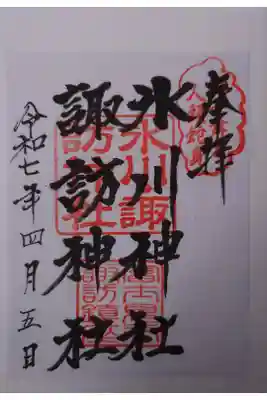 奉拝
氷川神社
諏訪神社
令和七年四月五日
氷川諏
訪神社